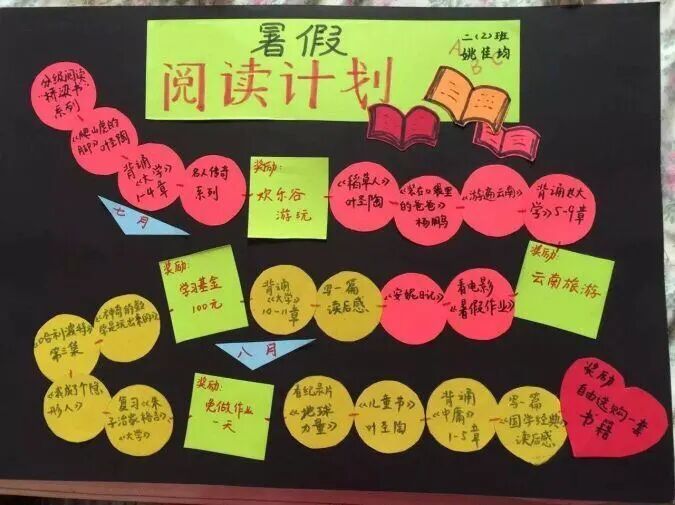 暑假
阅读计划
二(2)班
姚佳均
A B C
分级阅读
"桥梁书"
系列
《爬山虎的
脚》叶圣陶
背诵
《大学》
1-4章
名人传奇
系列
奖励:
欢乐谷
游玩
《稻草人》
叶圣陶
《装在口袋里
的爸爸》
杨鹏
《游遍云南》
背诵《大
学》5-9章
七月
奖励:
云南旅游
看电影
《暑假作业》
《安妮日记》
写一篇
读后感
背诵
《大学》
10-11章
奖励:
学习基金
100元
八月
《神奇的数
学是玩出来的》
《哈利波特》
第三集
《我成了个隐
形人》
复习《朱
子治家格言》
《大学》
奖励:
免做作业
一天
看纪录片
《地球
力量》
《儿童书》
叶圣陶
背诵
《中庸》
1-5章
写一篇
"国学经典"
读后感
奖励
自由选购一套
书籍